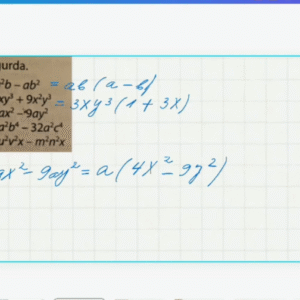 gurda.
²b – ab² = ab (a – b)
xy³ + 9x²y³ = 3xy³ (1 + 3x)
ax² – 9ay²
a²b⁴ – 32a²c⁴
u²v²x – m²n²x
ax² – 9ay² = a (4x² – 9y²)